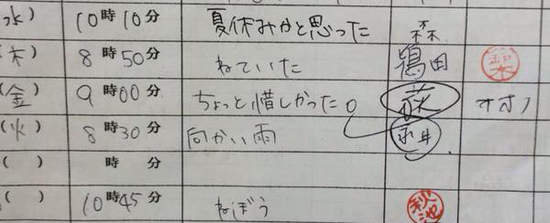 水) 10時10分 夏休みかと思った 森
(木) 8時50分 ねていた 鴇田
(金) 9時00分 ちょっと惜しかった。 荻 オオノ
(火) 8時30分 向かい雨
( ) 時 分
( ) 10時45分 ねぼう